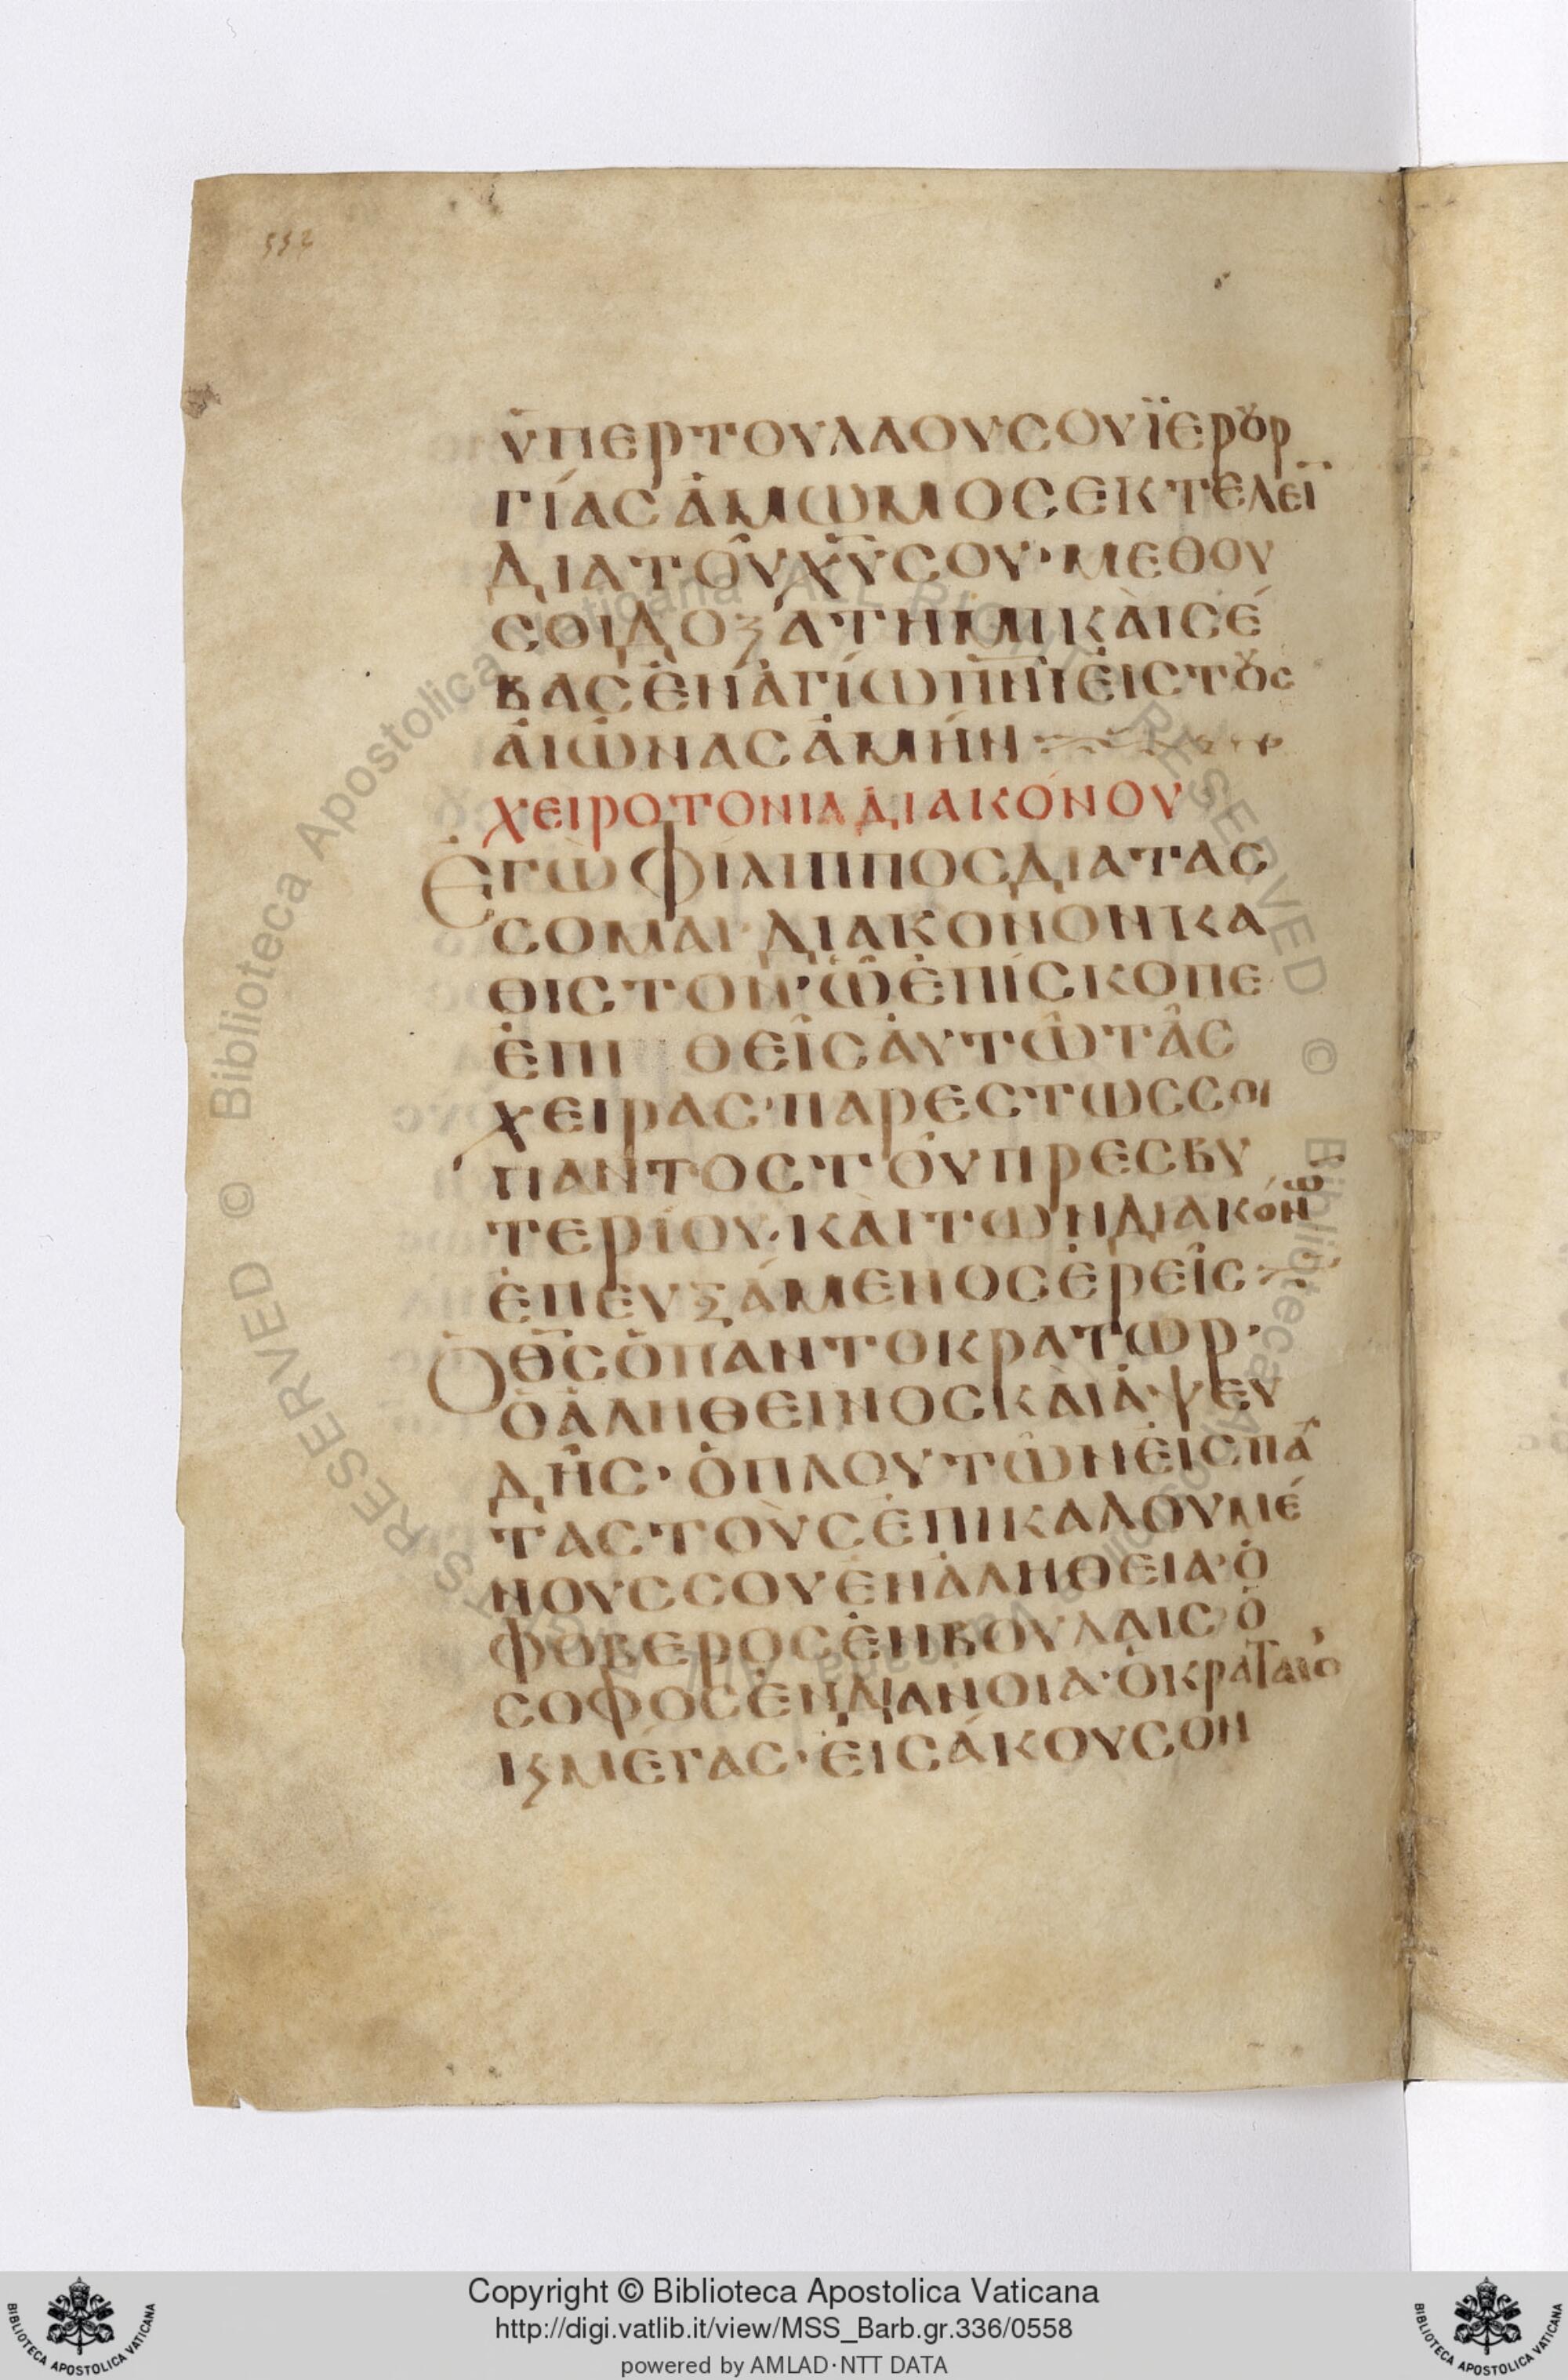 532
ὑπερτουλαουσουϊερȣρ
γίασἀμωμοσεκτελεῖ
διατοῦχ̅υ̅σου·μεθου
σοιδοξατημικὰισέ
βασἐναγίωπ̅ν̅ι̅ἐιστȣσ
ἀιῶνασἀμήν
χειροτονιαδιακόνου
Ἐγὼφίλιπποσδιατασ
σομαι·διακονονκα
θιστον·ὦἐπίσκοπε
ἐπι θεὶσἀυτῶτὰσ
χειρασ·παρεστωσσοι
παντοστοῦπρεσβυ
τερίου·κὰιτωνδιακόνω
ἐπευξάμενοσἐρεῖσ
Ὁθ̅σ̅ὁπαντοκρατωρ·
ὁἀληθεινοσκὰιἀψευ
δὴσ·ὁπλουτῶνἐισπα
ταστοὺσἐπικαλουμέ
νουσσουἐναληθεια·ὁ
φοβεροσἐνβουλαισὁ
σοφοσἐνδιανοια·ὁκραταιο
κϛμέγασ·ἐισάκουσον
© Biblioteca Apostolica Vaticana ALL RIGHTS RESERVED © Biblioteca Apostolica Vaticana ALL RIGHTS RESERVED
Copyright © Biblioteca Apostolica Vaticana
http://digi.vatlib.it/view/MSS_Barb.gr.336/0558
powered by AMLAD·NTT DATA
BIBLIOTECA APOSTOLICA VATICANA
BIBLIOTECA APOSTOLICA VATICANA